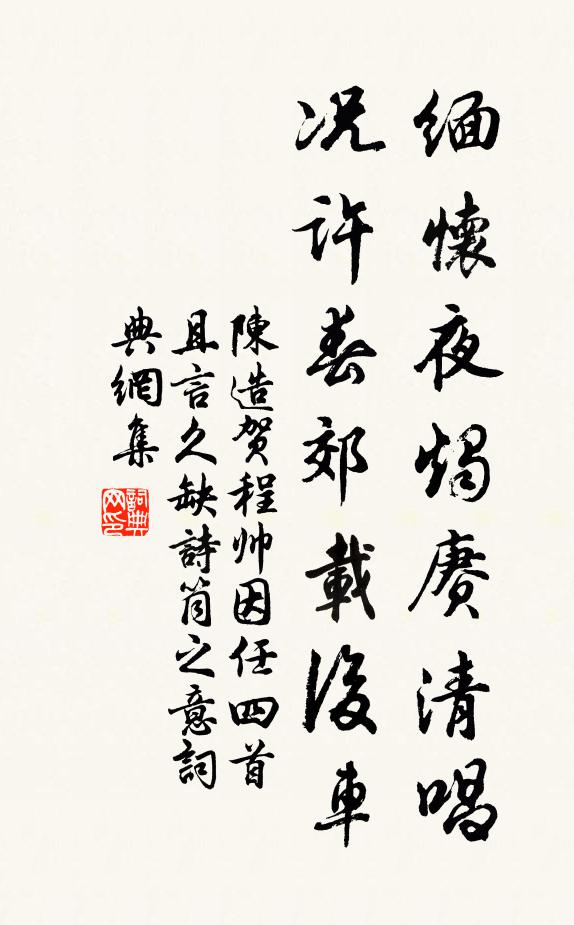 緬懷夜燭賡清唱
况許春郊載後車
陳造賀程帅因任四首
且言久缺詩筒之意詞
典網集
詞典
网印